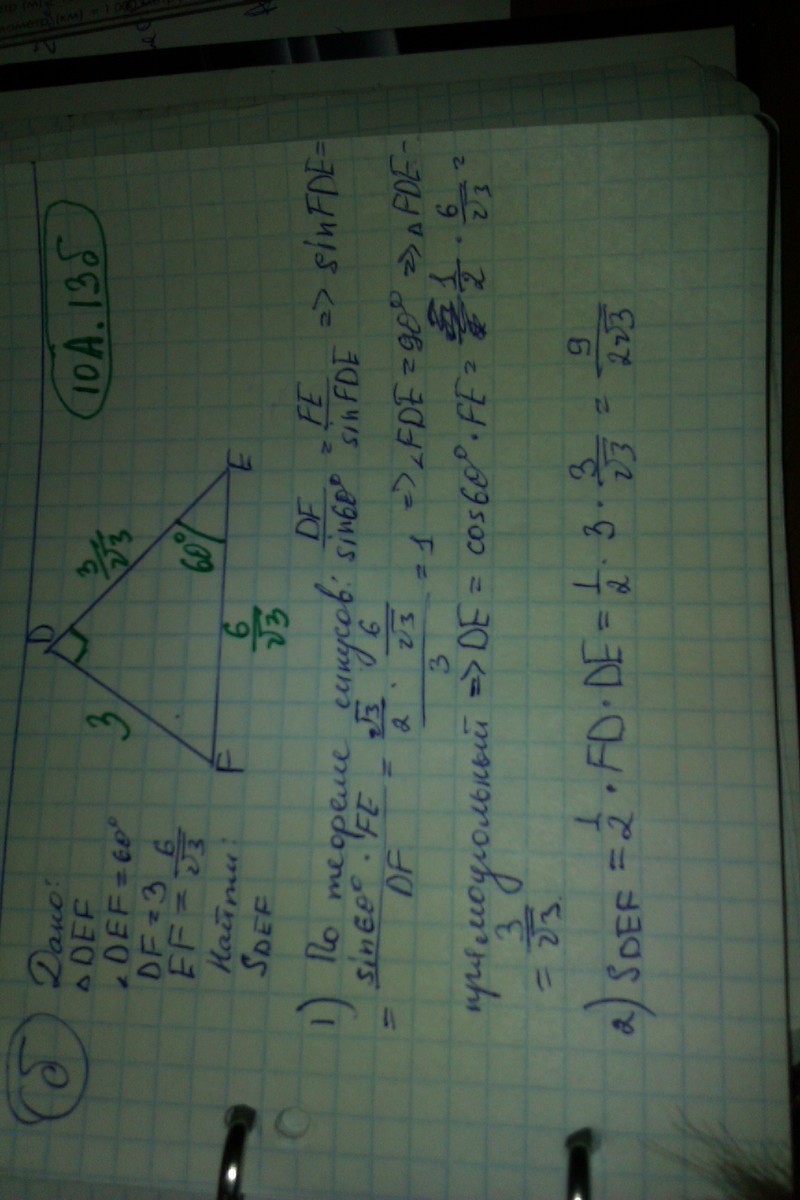 б
Дано:
△DEF
∠DEF = 60°
DF = 3
EF = 6/√3
Найти:
S DEF
D
F
E
3
3/√3
60°
6/√3
10А.13б
1) По теореме синусов: DF/sin60° = FE/sinFDE => sinFDE =
= sin60° · FE/DF = (√3/2 · 6/√3)/3 = 1 => ∠FDE = 90° => △FDE -
прямоугольный => DE = cos60° · FE = 1/2 · 6/√3 =
= 3/√3.
2) S DEF = 1/2 · FD · DE = 1/2 · 3 · 3/√3 = 9/2√3